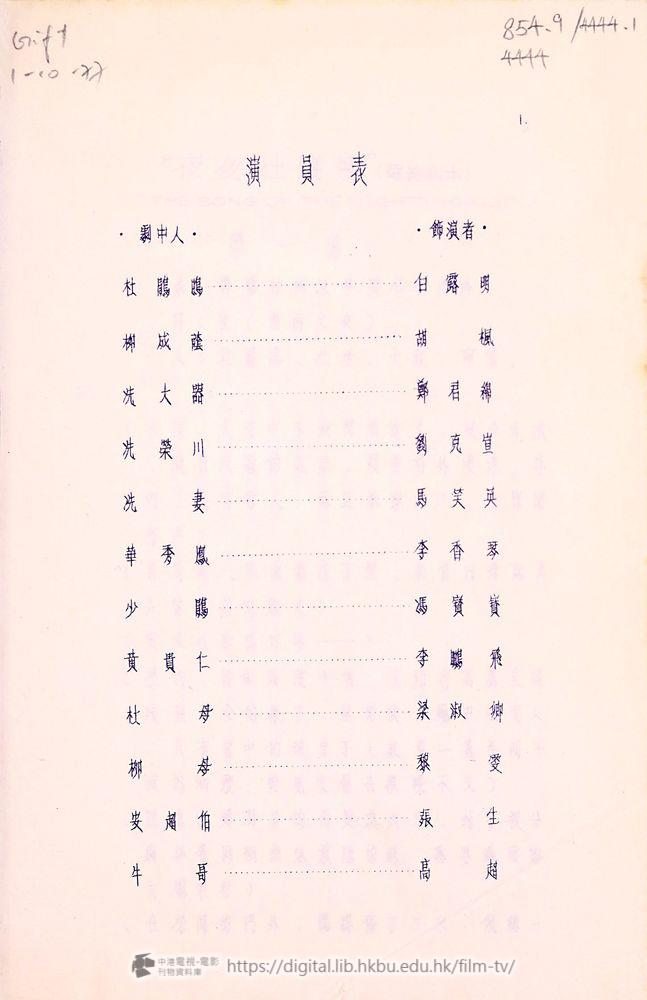 Gift
1-10-77
854.9/4444.1
4444
1.
演員表
·劇中人· ·飾演者·
杜鵑鵑……白露明
柳成蔭……胡楓
冼大器……鄭君綿
冼榮川……劉克宣
冼妻……馬笑英
華秀鳳……李香琴
少鵑……馮寶寶
黄貴仁……李鵬飛
杜母……梁淑卿
柳母……黎雯
安超伯……張生
牛哥……高超
中港電視·電影
刊物資料庫
https://digital.lib.hkbu.edu.hk/film-tv/